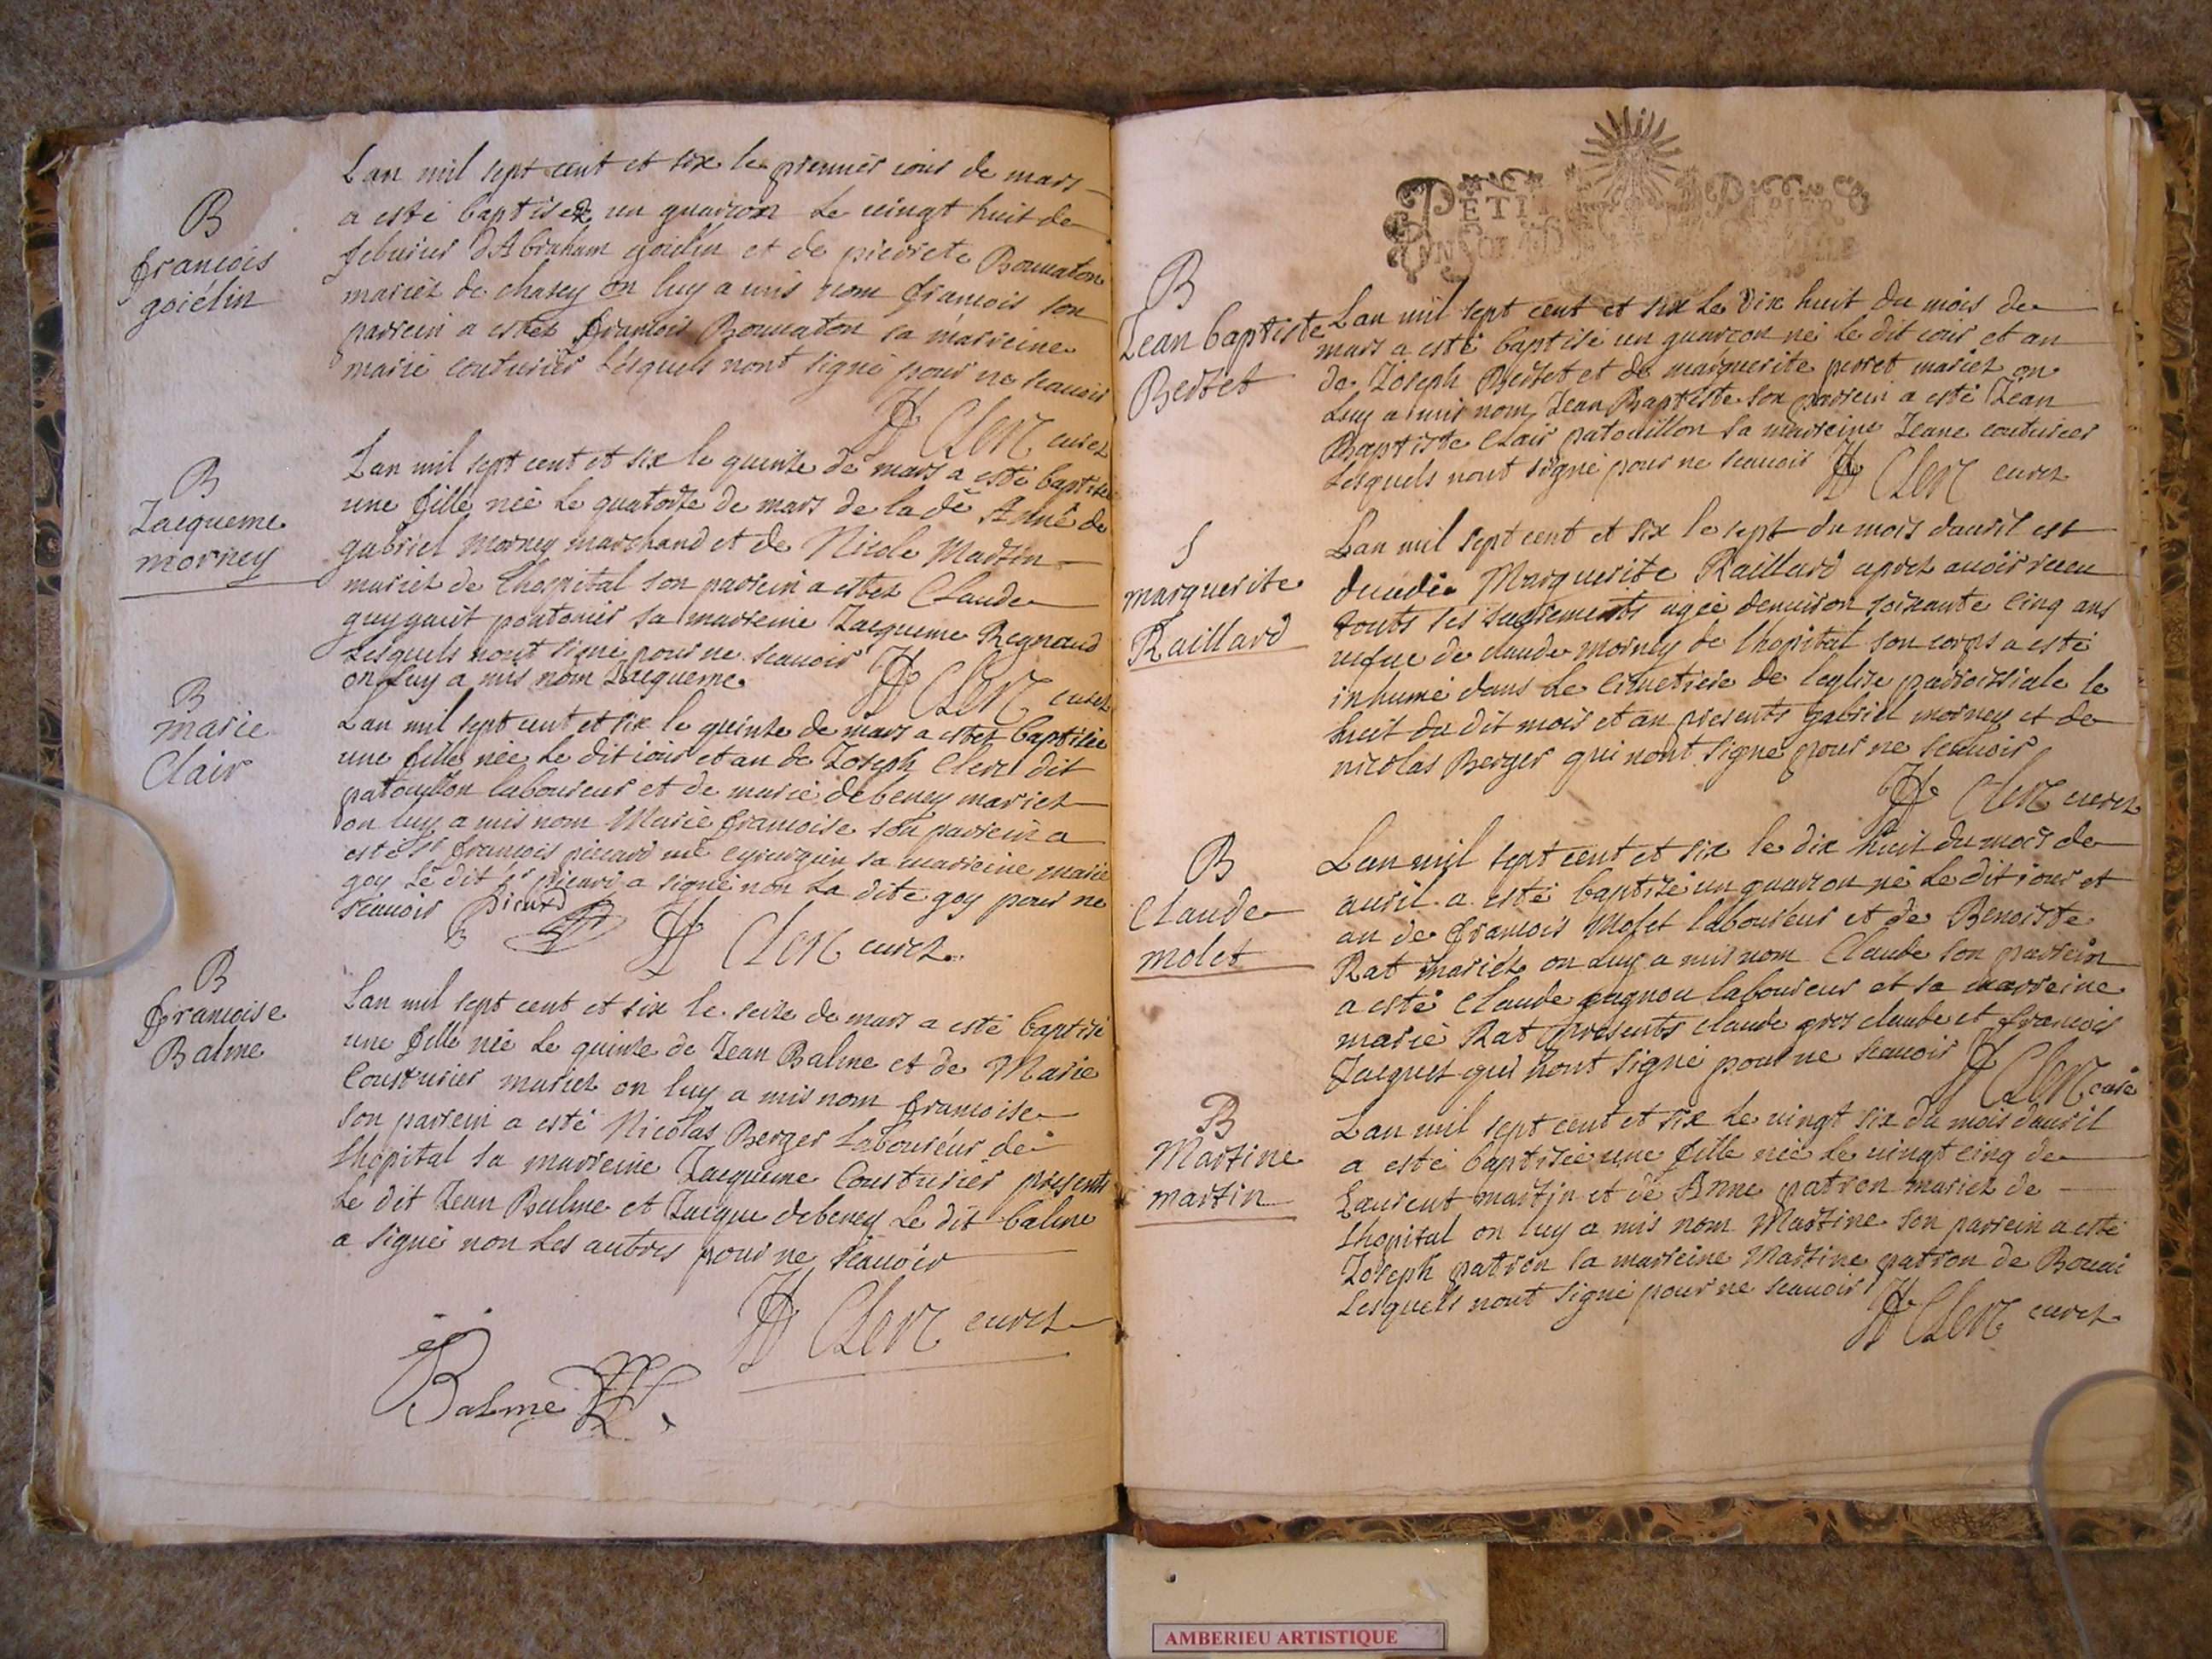 B
françois
goiélin
Lan mil sept cent et six le premier iour de mars
a esté baptisez un guarcon le uingt huit de
feburier dAbraham goiélin et de pierrete Bonnaton
mariez de chasey on luy a mis nom françois son
parrein a estez françois Bonnaton sa marreine
marie couturier lesquels nont signé pour ne scauoir
Clerc curez
B
Jacqueme
morney
Lan mil sept cent et six le quinze de mars a esté baptisé
une fille née le quatorze de mars de la de Année de
gabriel morney marchand et de Nicole Martin
mariez de lhopital son parrein a estez Claude
guygait pontonier sa marreine Jacqueme Regnaud
Lesquels nont signé pour ne scauoir
on luy a mis nom Jacqueme
Clerc curez
B
marie
Clair
Lan mil sept cent et six le quinze de mars a estez baptisée
une fille née le dit iour et an de Joseph Clerc dit
patouillon laboureur et de marie debeney mariez
on luy a mis nom Marie françoise son parrein a
esté sr françois piccard me cyrurgien sa marreine marie
goy Le dit sr picard a signé non la dite goy pour ne
scauoir Picard
Clerc curez
B
françoise
Balme
Lan mil sept cent et six le seize de mars a esté baptisé
une fille née le quinze de Jean Balme et de Marie
Cousturier mariez on luy a mis nom françoise
son parrein a esté Nicolas Berger Laboureur de
lhopital sa marreine Jacqueme Cousturier presents
le dit Jean Balme et Jacque debeney Le dit balme
a signé non les autres pour ne scauoir
Clerc curez
Balme
PETIT PAPIER
B
Jean baptiste
Bertet
Lan mil sept cent et six le dix huit du mois de
mars a esté baptisé un guarcon né le dit iour et an
de Joseph Bertet et de marguerite perret mariez on
luy a mis nom Jean Baptiste son parrein a esté Jean
Baptiste Clair patouillon sa marreine Jeane couturier
Lesquels nont signé pour ne scauoir Clerc curez
S
marguerite
Raillard
Lan mil sept cent et six le sept du mois dauril est
decedée Marguerite Raillard aprez auoir receu
touts ses sacrements agée denuiron soixante cinq ans
uefue de claude morney de lhopital son corps a esté
inhumé dans le cimetiere de leglise parroissiale le
huit du dit mois et an presents gabriel morney et de
nicolas Berger qui nont signé pour ne scauoir
Clerc curez
B
Claude
molet
Lan mil sept cent et six le dix huit du mois de
auril a esté baptisé un guarcon né le dit iour et
an de françois Molet laboureur et de Benoiste
Rat mariez on luy a mis nom Claude son parrein
a esté Claude gagnou laboureur et sa marreine
marie Rat presents claude gros claude et françois
Jacquet qui nont signé pour ne scauoir Clerc curé
B
Martine
martin
Lan mil sept cent et six le uingt six du mois dauril
a esté baptisée une fille née le uingt cinq de
Laurent martin et de Anne patron mariez de
lhopital on luy a mis nom Martine son parrein a esté
Joseph patron sa marreine Martine patron de Bouai
Lesquels nont signé pour ne scauoir Clerc curez
AMBERIEU ARTISTIQUE